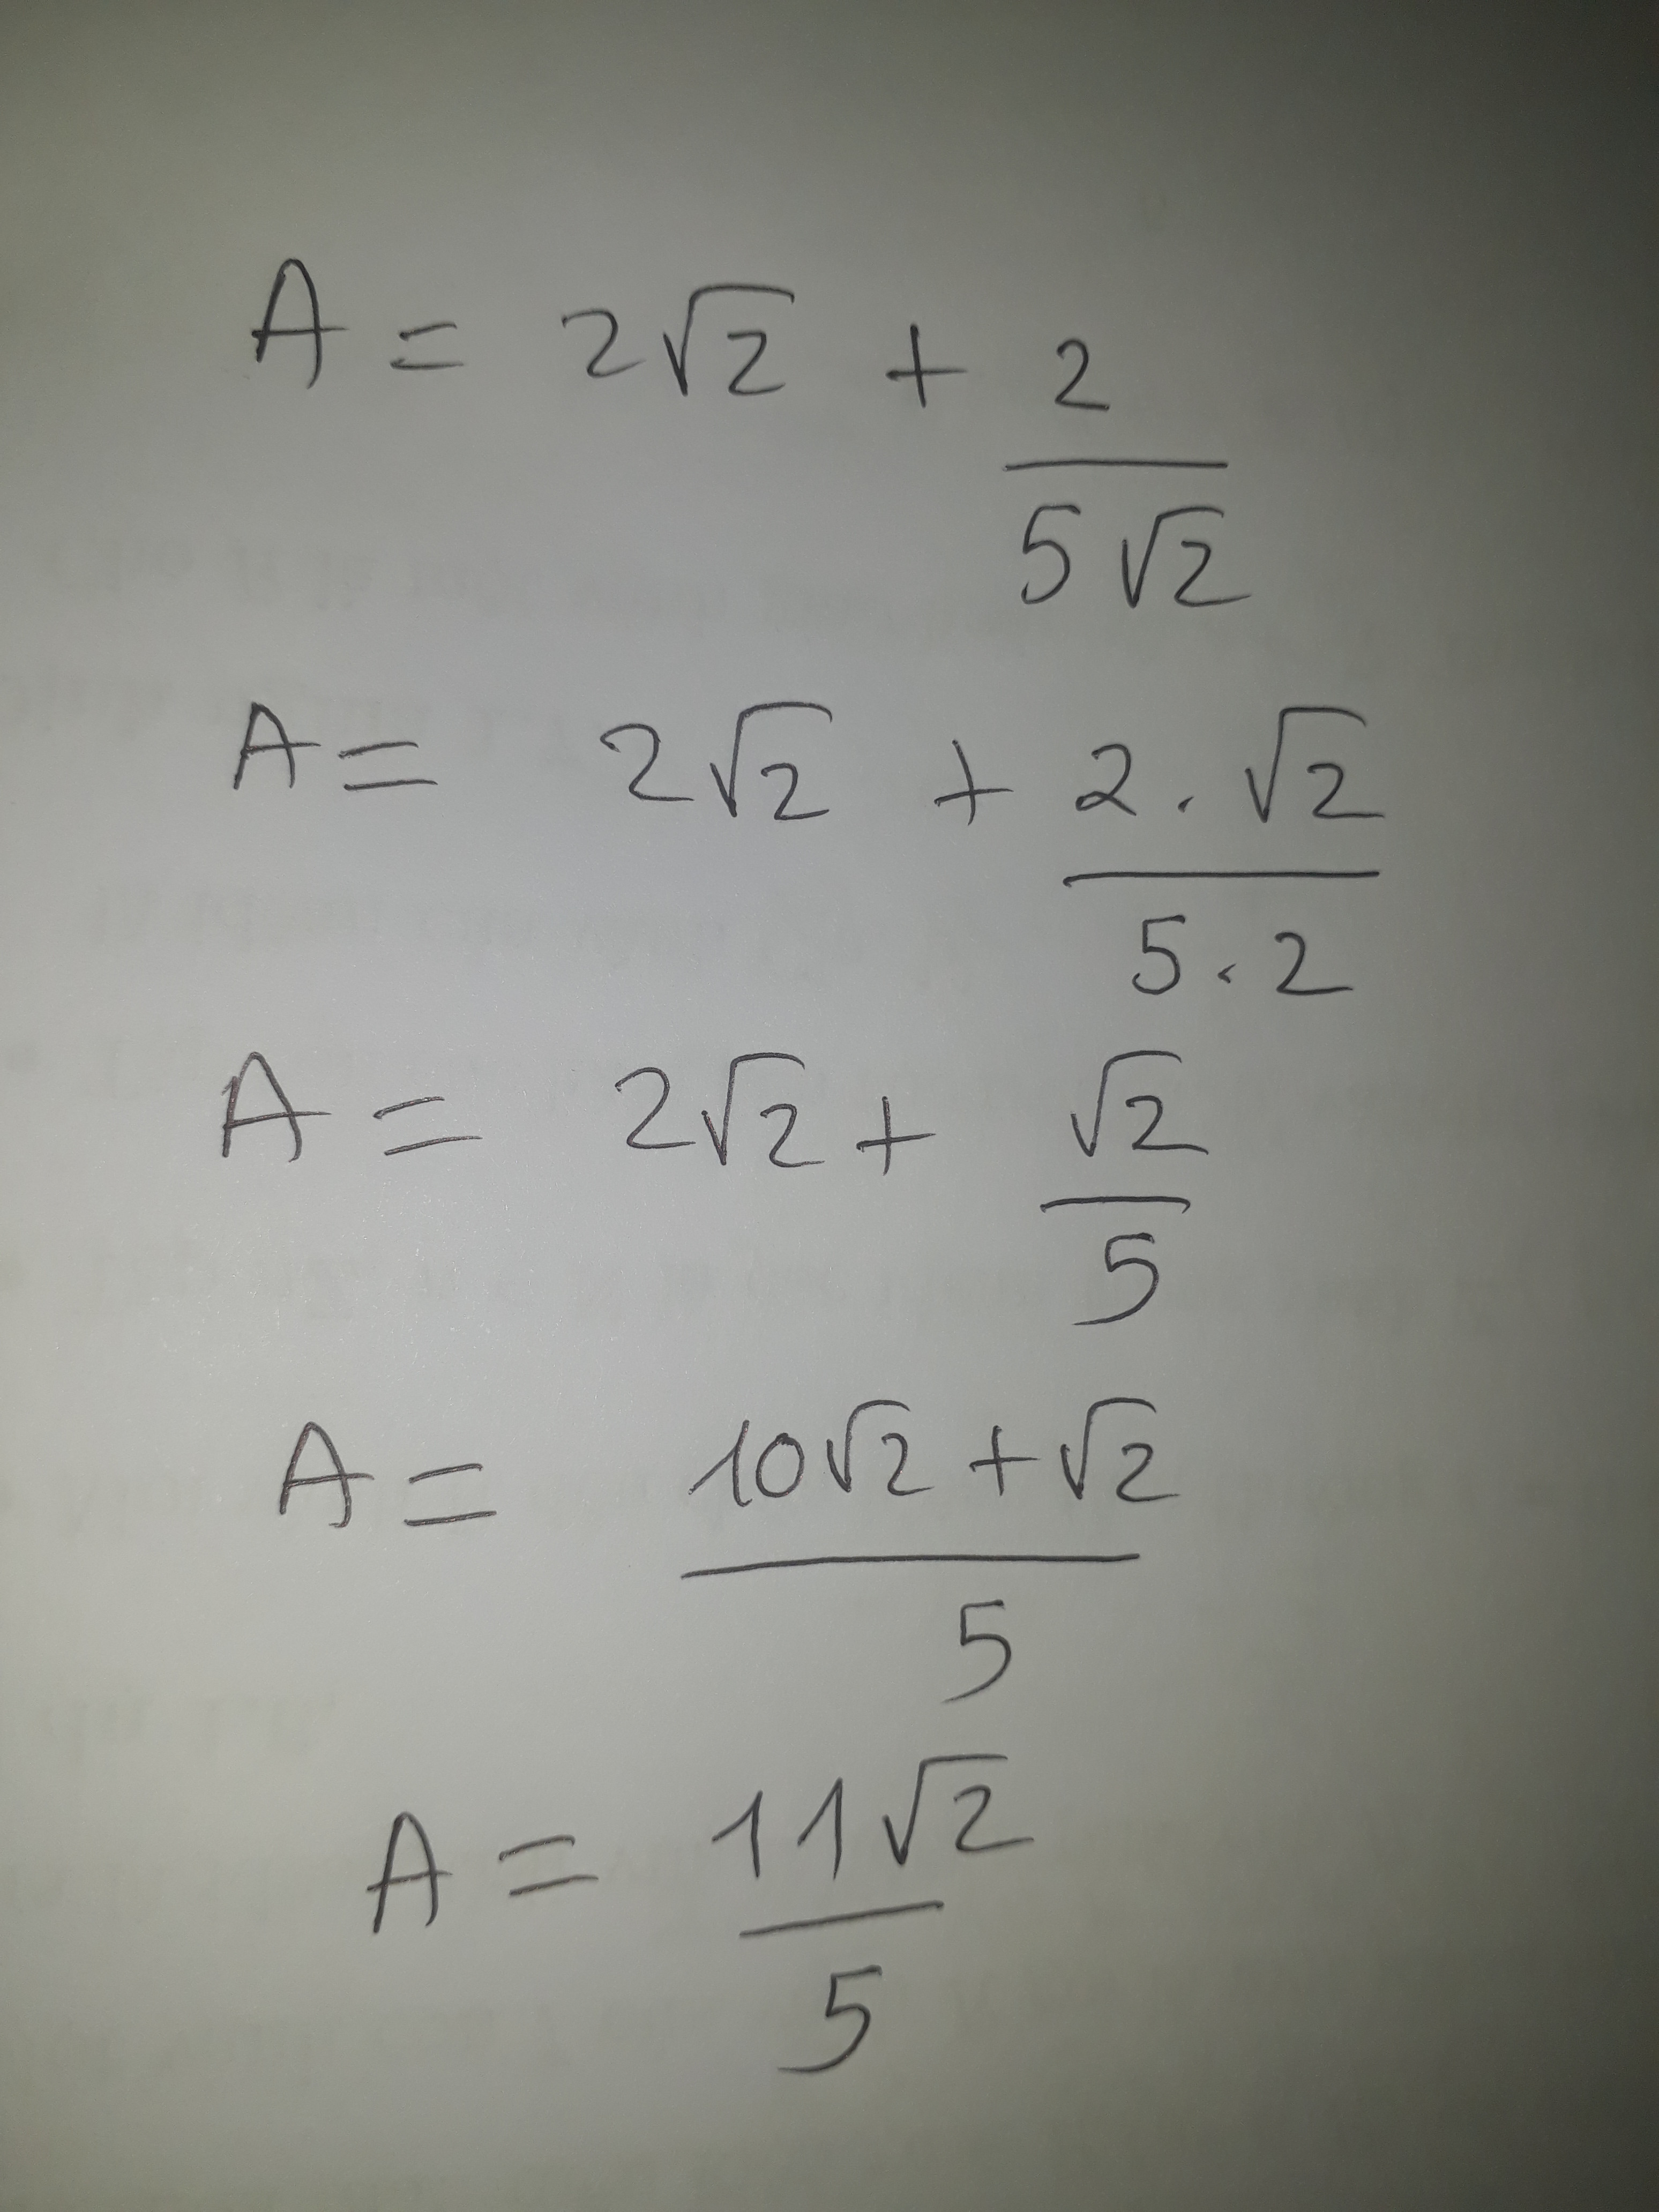 A = 2√2 + 2/(5√2)
A = 2√2 + (2 . √2)/(5 . 2)
A = 2√2 + √2/5
A = (10√2 + √2)/5
A = 11√2/5